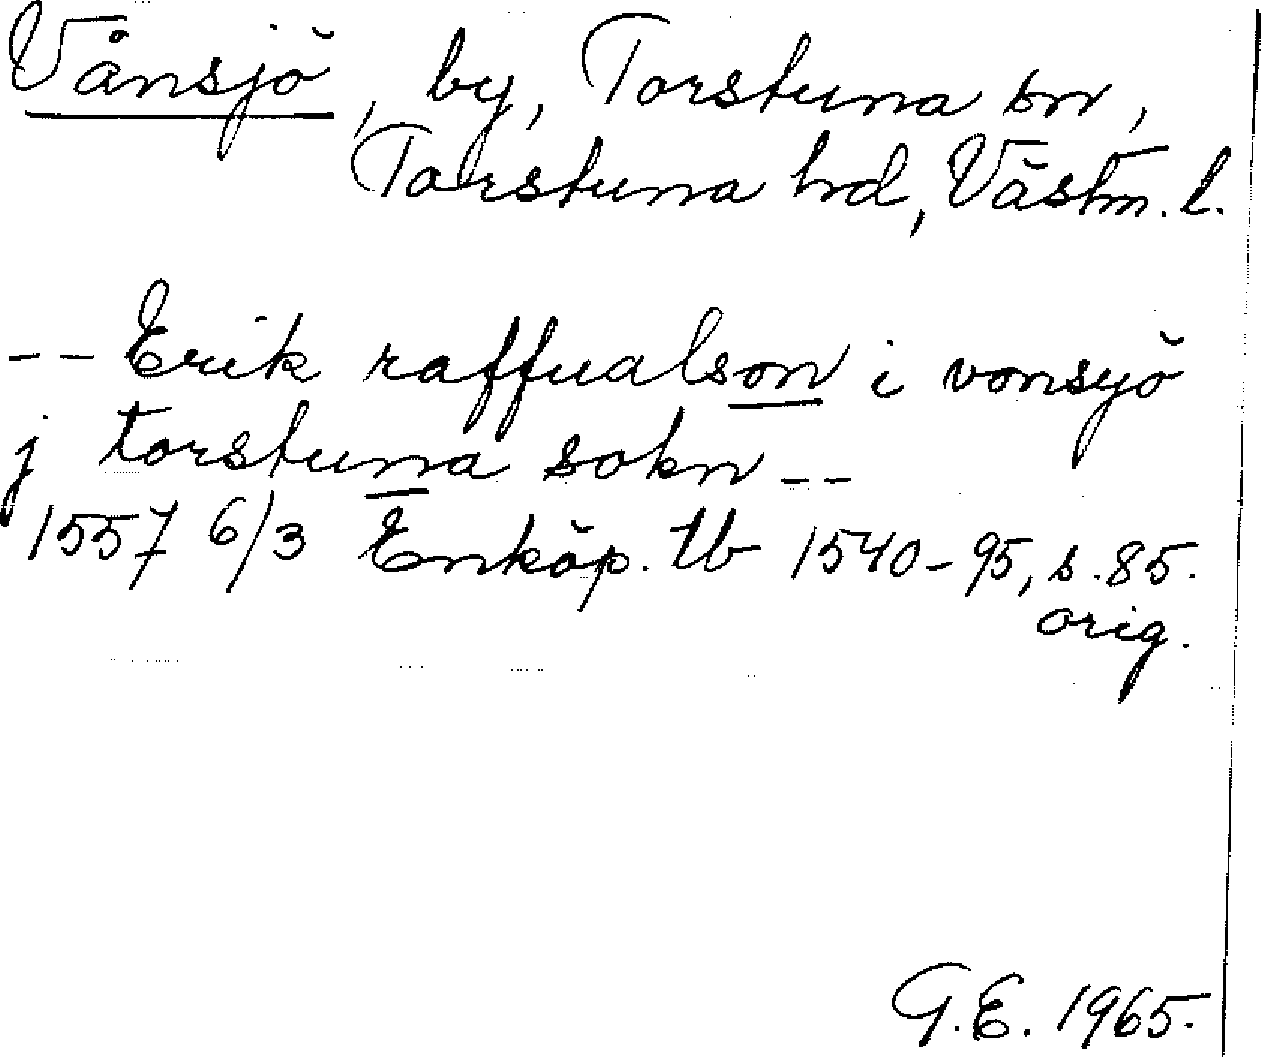 Vånsjö, by, Torstuna sn,
Torstuna hd, Västm. l.
-- Erik raffualson i vonsyö
j torstuna sokn --
1557 6/3 Enköp. tb 1540-95, s. 85.
orig.
G.E. 1965.